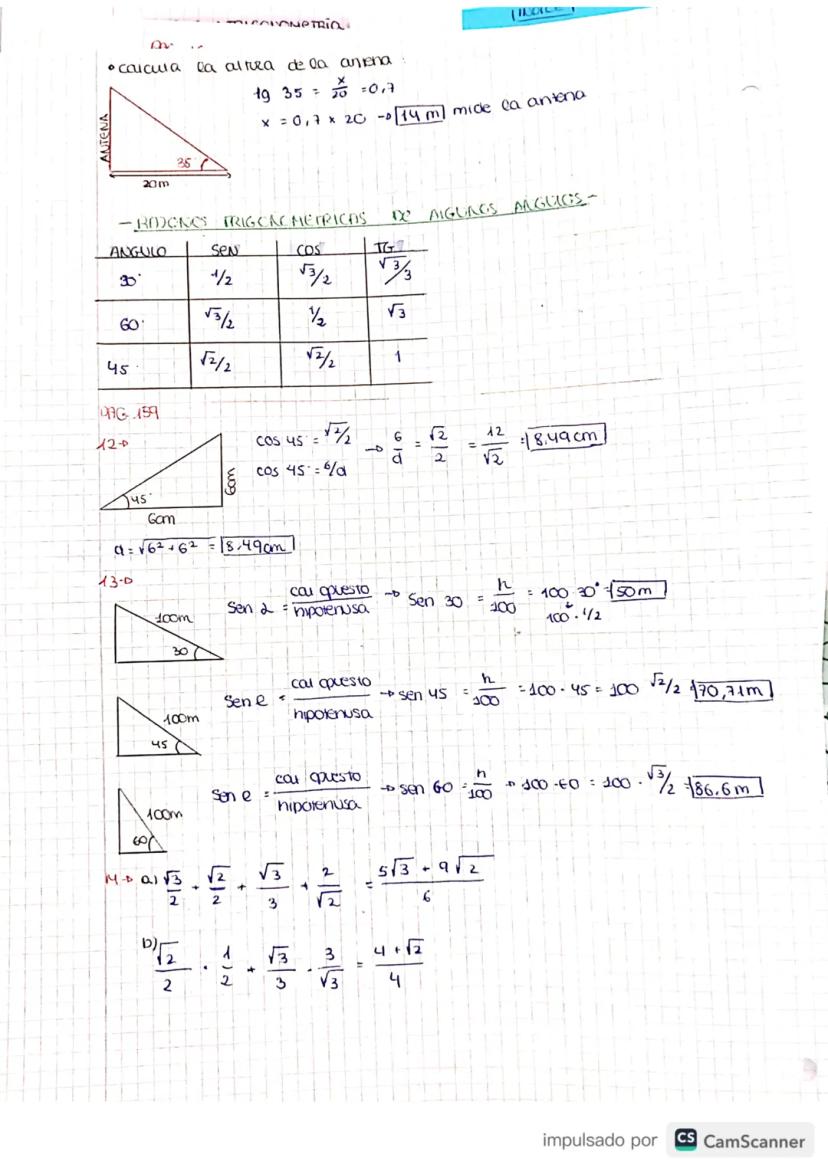 • calcula la altura de la antena:
tg 35 = x/20 = 0,7
x = 0,7 x 20 → 14 m mide la antena
ANTENA
35°
20m
- RAZONES TRIGONOMETRICAS DE ALGUNOS ANGULOS -
ANGULO SEN COS TG
30° 1/2 √3/2 √3/3
60° √3/2 1/2 √3
45° √2/2 √2/2 1
PAG. 159
12→
45°
6cm
6cm
cos 45° = √2/2 → 6/d = √2/2 = 12/√2 = 8,49cm
cos 45° = 6/d
d = √6² + 6² = 8,49cm
13→
100m
30
Sen α = cat opuesto/hipotenusa → Sen 30 = h/100 = 100·30° = 50 m
100 · 1/2
100m
45
Sen e = cat opuesto/hipotenusa → sen 45 = h/100 = 100 · 45 = 100 √2/2 = 70,71m
100m
60
Sen e = cat opuesto/hipotenusa → sen 60 = h/100 → 100 · 60 = 100 · √3/2 = 86,6m
14→ a) √3/2 + √2/2 + √3/3 + 2/√2 = 5√3 + 9√2/6
b) √2/2 · 1/2 + √3/3 · 3/√3 = 4 + √2/4
impulsado por CS CamScanner